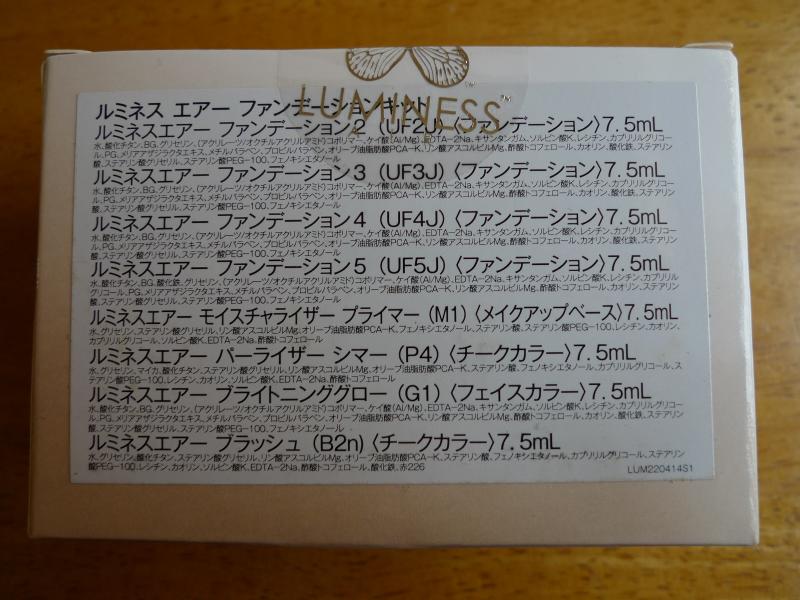 LUMINESS™
ルミネス エアー ファンデーションキット
ルミネスエアー ファンデーション2 (UF2J) 〈ファンデーション〉7.5mL
水,酸化チタン,BG,グリセリン,(アクリレーツ/オクチルアクリルアミド)コポリマー,ケイ酸(Al/Mg),EDTA-2Na,キサンタンガム,ソルビン酸K,レシチン,カプリリルグリコー
ル,PG,メリアアザジラクタエキス,メチルパラベン,プロピルパラベン,オリーブ油脂肪酸PCA-K,リン酸アスコルビルMg,酢酸トコフェロール,カオリン,酸化鉄,ステアリン
酸,ステアリン酸グリセリル,ステアリン酸PEG-100,フェノキシエタノール
ルミネスエアー ファンデーション3 (UF3J) 〈ファンデーション〉7.5mL
水,酸化チタン,BG,グリセリン,(アクリレーツ/オクチルアクリルアミド)コポリマー,ケイ酸(Al/Mg),EDTA-2Na,キサンタンガム,ソルビン酸K,レシチン,カプリリルグリコー
ル,PG,メリアアザジラクタエキス,メチルパラベン,プロピルパラベン,オリーブ油脂肪酸PCA-K,リン酸アスコルビルMg,酢酸トコフェロール,カオリン,酸化鉄,ステアリン
酸,ステアリン酸グリセリル,ステアリン酸PEG-100,フェノキシエタノール
ルミネスエアー ファンデーション4 (UF4J) 〈ファンデーション〉7.5mL
水,酸化チタン,BG,グリセリン,(アクリレーツ/オクチルアクリルアミド)コポリマー,ケイ酸(Al/Mg),EDTA-2Na,キサンタンガム,ソルビン酸K,レシチン,カプリリルグリコー
ル,PG,メリアアザジラクタエキス,メチルパラベン,プロピルパラベン,オリーブ油脂肪酸PCA-K,リン酸アスコルビルMg,酢酸トコフェロール,カオリン,酸化鉄,ステアリン
酸,ステアリン酸グリセリル,ステアリン酸PEG-100,フェノキシエタノール
ルミネスエアー ファンデーション5 (UF5J) 〈ファンデーション〉7.5mL
水,酸化チタン,BG,酸化鉄,グリセリン,(アクリレーツ/オクチルアクリルアミド)コポリマー,ケイ酸(Al/Mg),EDTA-2Na,キサンタンガム,ソルビン酸K,レシチン,カプリリル
グリコール,PG,メリアアザジラクタエキス,メチルパラベン,プロピルパラベン,オリーブ油脂肪酸PCA-K,リン酸アスコルビルMg,酢酸トコフェロール,カオリン,ステアリン
酸,ステアリン酸グリセリル,ステアリン酸PEG-100,フェノキシエタノール
ルミネスエアー モイスチャライザー プライマー (M1) 〈メイクアップベース〉7.5mL
水,グリセリン,ステアリン酸グリセリル,リン酸アスコルビルMg,オリーブ油脂肪酸PCA-K,フェノキシエタノール,ステアリン酸,ステアリン酸PEG-100,レシチン,カオリン,
カプリリルグリコール,ソルビン酸K,EDTA-2Na,酢酸トコフェロール
ルミネスエアー パーライザー シマー (P4) 〈チークカラー〉7.5mL
水,グリセリン,マイカ,酸化チタン,ステアリン酸グリセリル,リン酸アスコルビルMg,オリーブ油脂肪酸PCA-K,ステアリン酸,フェノキシエタノール,カプリリルグリコール,ス
テアリン酸PEG-100,レシチン,カオリン,ソルビン酸K,EDTA-2Na,酢酸トコフェロール
ルミネスエアー ブライトニンググロー (G1) 〈フェイスカラー〉7.5mL
水,酸化チタン,BG,グリセリン,(アクリレーツ/オクチルアクリルアミド)コポリマー,ケイ酸(Al/Mg),EDTA-2Na,キサンタンガム,ソルビン酸K,レシチン,カプリリルグリコー
ル,PG,メリアアザジラクタエキス,メチルパラベン,プロピルパラベン,オリーブ油脂肪酸PCA-K,リン酸アスコルビルMg,酢酸トコフェロール,カオリン,酸化鉄,ステアリン
酸,ステアリン酸グリセリル,ステアリン酸PEG-100,フェノキシエタノール
ルミネスエアー ブラッシュ (B2n) 〈チークカラー〉7.5mL
水,グリセリン,酸化チタン,ステアリン酸グリセリル,リン酸アスコルビルMg,オリーブ油脂肪酸PCA-K,ステアリン酸,フェノキシエタノール,カプリリルグリコール,ステアリン
酸PEG-100,レシチン,カオリン,ソルビン酸K,EDTA-2Na,酢酸トコフェロール,酸化鉄,赤226
LUM220414S1